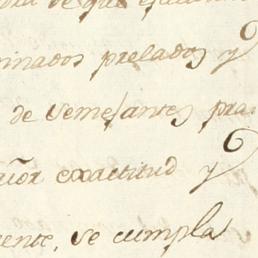 de que
minados prelados y
de semejantes pra
aior exactitud y
ente, se cumpla